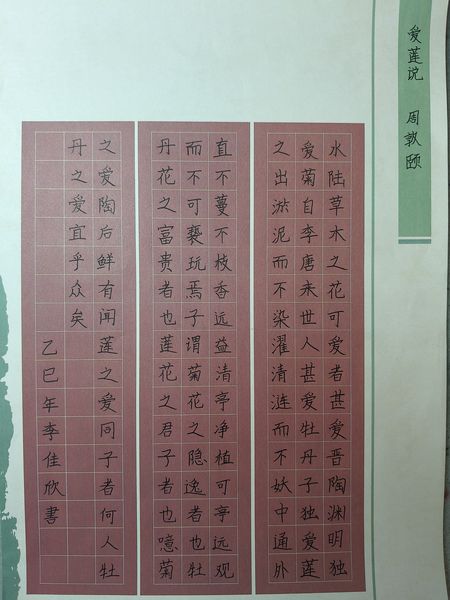 爱莲说 周敦颐
水陆草木之花可爱者甚爱晋陶渊明独
爱菊自李唐未世人甚爱牡丹子独爱莲
之出淤泥而不染濯清涟而不妖中通外
直不蔓不枝香远益清亭净植可亭远观
而不可亵玩焉子谓菊花之隐逸者也牡
丹花之富贵者也莲花之君子者也噫菊
之爱陶后鲜有闻莲之爱同子者何人牡
丹之爱宜乎众矣
乙巳年李佳欣書